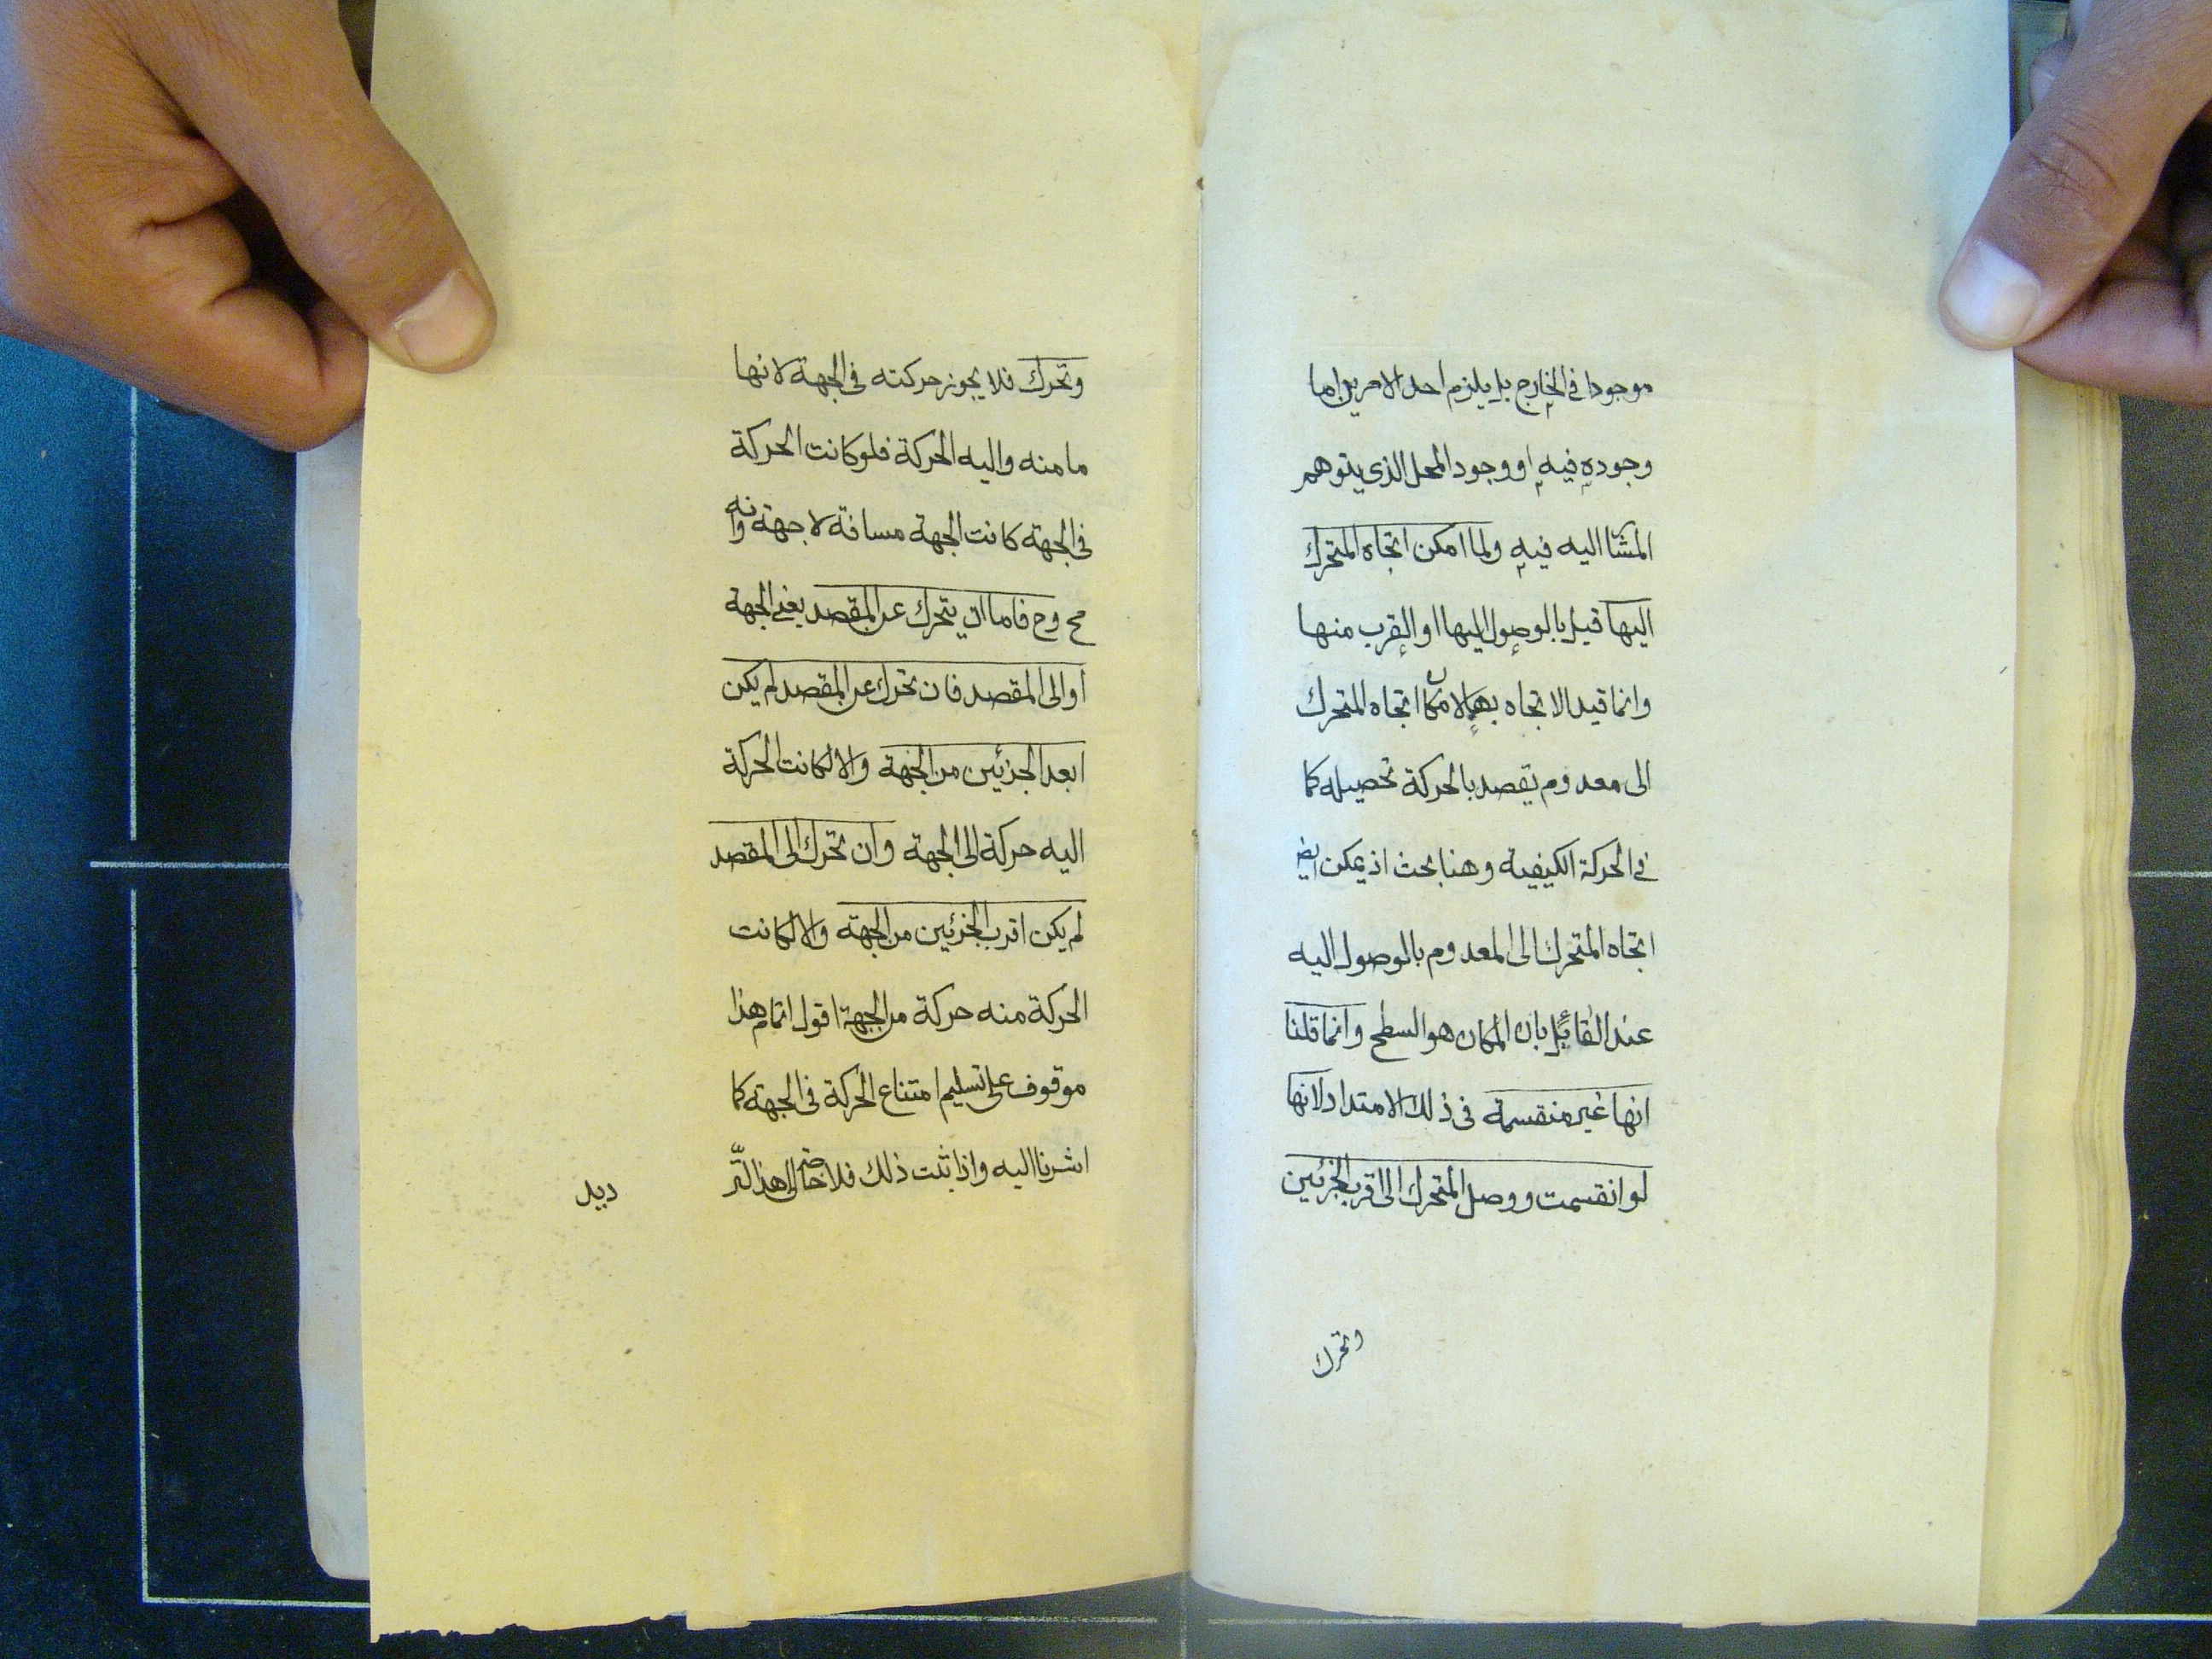 موجودا في الخارج بل يلزم احد الامرين اما
وجوده فيه او وجود المحل الذي يتوهم
المشا اليه فيه ولما امكن اتجاه المتحرك
اليها قيل بالوصول اليها او القرب منها
وانما قيد الاتجاه بهما لامكان اتجاه المتحرك
الى معدوم يقصد بالحركة تحصيله كما
في الحركة الكيفية وهنا بحث اذ يمكن ايض
اتجاه المتحرك الى المعدوم بالوصول اليه
عند القائل بان المكان هو السطح وانما قلنا
انها غير منقسمة في ذلك الامتداد لانها
لو انقسمت ووصل المتحرك الى اقرب الجزئين
وتحرك
وتحرك فلا يجوز حركته في الجهة لانها
ما منه واليه الحركة فلو كانت الحركة
في الجهة كانت الجهة مسافة لا جهة وانه
مح وح فاما ان يتحرك عن المقصد يعني الجهة
او الى المقصد فان تحرك عن المقصد لم يكن
ابعد الجزئين من الجهة والا لكانت الحركة
اليه حركة الى الجهة وان تحرك الى المقصد
لم يكن اقرب الجزئين من الجهة والا لكانت
الحركة منه حركة من الجهة اقول اتمام هذا
موقوف على تسليم امتناع الحركة في الجهة كما
اشرنا اليه واذا ثبت ذلك فلا حاجة الى هذا